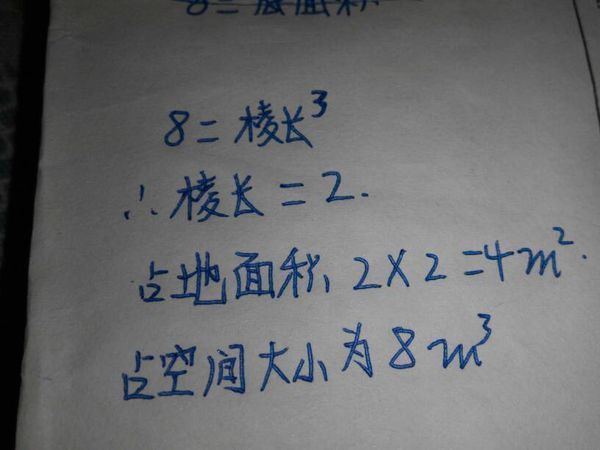 8=底面积
8=棱长³
∴棱长=2.
占地面积, 2×2=4m².
占空间大小为8m³